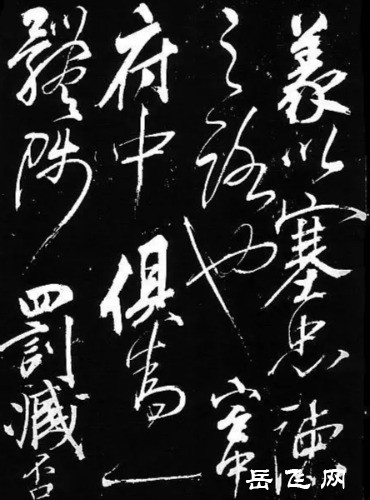 義以塞忠諫
之路也宮中
府中俱為一
體陟罰臧否
岳飞网